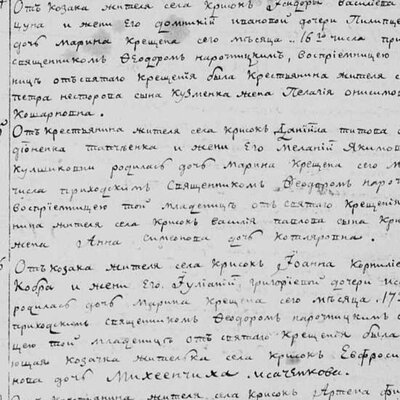 Отъ козака жителя села крисокъ Ѳиодора Василіева
цуна и жени его домникіи ивановой дочери Пилипце
дочь марина крещена сего мѣсяца 16го числа при
священникомъ Ѳеодоромъ нарочицкимъ, воспріемницею
ницъ отъ святаго крещенія была крестьянина жителя с
петра несторова сына кузменка жена Пелагія онисимо
Кошарновна.
Отъ крестьянина жителя села крисокъ Даніила титова с
діоненка и жени его Меланіи Якимов
Кулшиковни родилась дочь марина крещена сего м
числа приходскимъ священникомъ Ѳеодоромъ нароч
воспріемницею той младеницъ отъ святаго крещенія
нина жителя села крисокъ василія павлова сына кри
жена Анна симеонова дочь котляровна.
Отъ козака жителя села крисокъ Іоанна корниліе
Кобра и жени его Іуліаніи григоріевой дочери
родилась дочь марина крещена сего мѣсяца 17
приходскимъ священникомъ Ѳеодоромъ нарочицкимъ
цею той младеницъ отъ святаго крещенія была
ющая козачка жителька села крисокъ Евфроси
нова дочь михеенчиха исаченкова.
жителя села крисокъ Артема фи